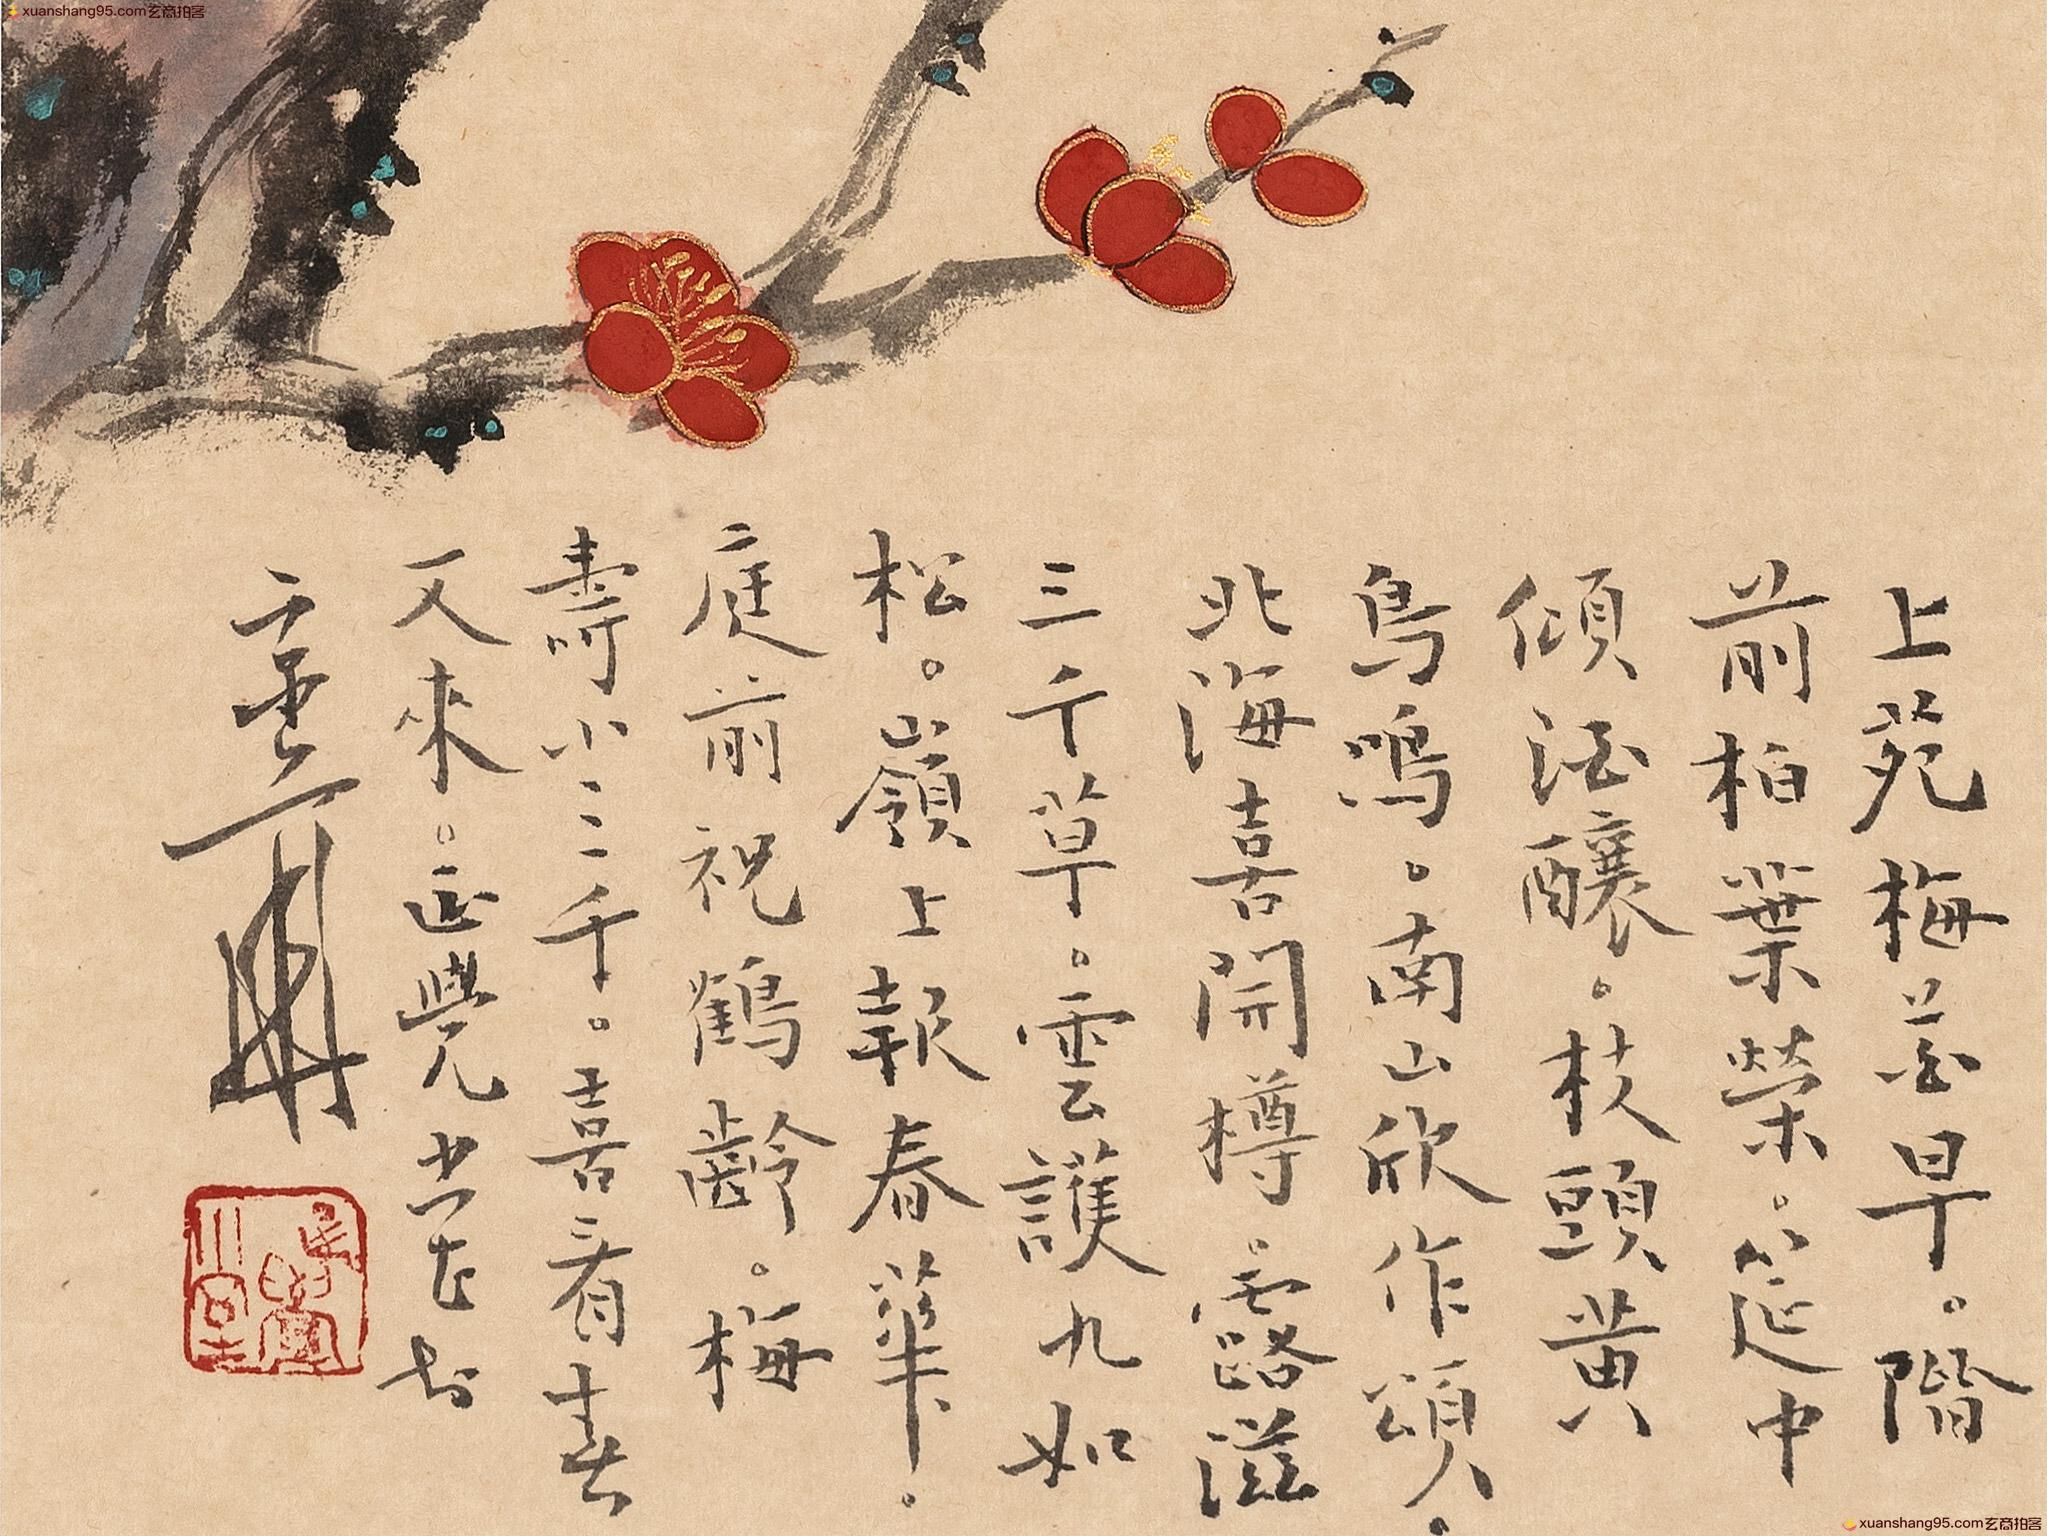 xuanshang95.com玄商拍客
上苑梅花早。階
前柏葉榮。筵中
傾酒釀。枝頭黃
鳥鳴。南山欣作頌。
北海喜開樽。露滋
三千草。雲護九如
松。嶺上報春華。
庭前祝鶴齡。梅
壽八千。喜看春
又來。
xuanshang95.com玄商拍客